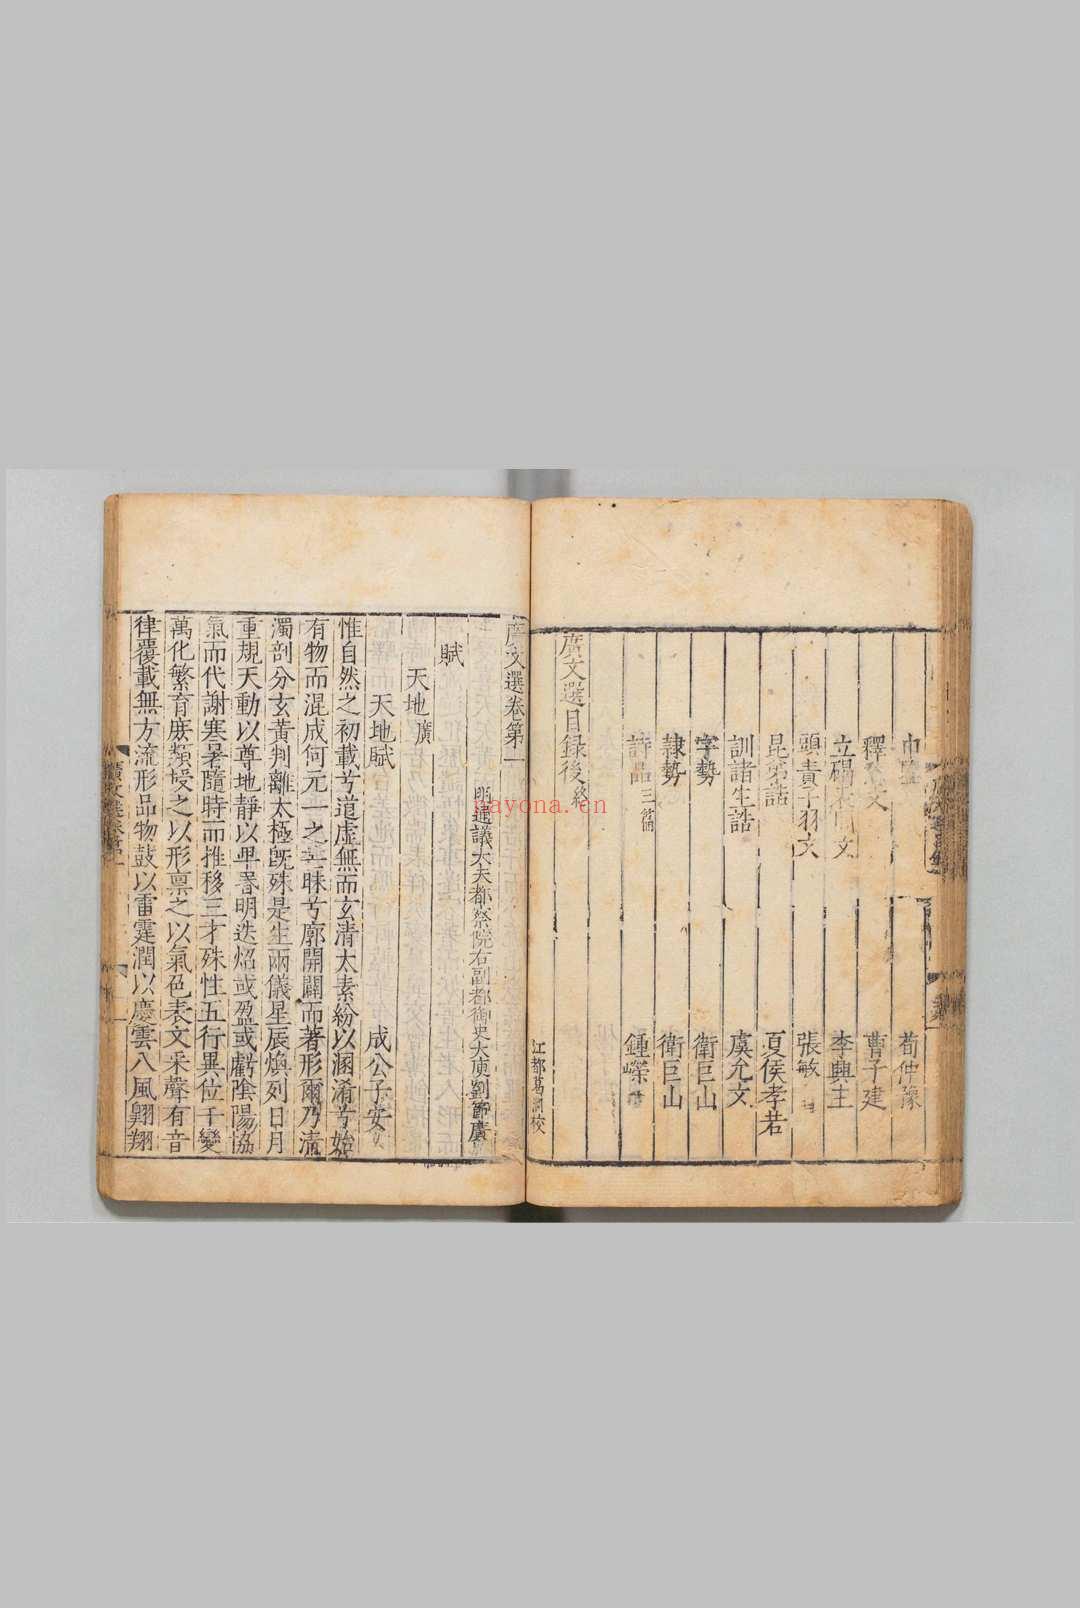 申鑒 荀仲豫
釋愁文 曹子建
立碣表閭文 李興
頭責子羽文 張敏
昆弟誥 夏侯孝若
訓諸生誥 虞允文
字勢 衛巨山
隸勢 衛巨山
詩品三首 鍾嶸
廣文選目錄後終
江都葛澗校
廣文選卷第一
明通議大夫都察院右副都御史大庾劉節廣
賦
天地廣
天地賦 成公子安
惟自然之初載兮道虛無而玄清太素紛以溷淆兮始
有物而混成何元一之芒昧兮廓開闢而著形爾乃清
濁剖分玄黃判離太極旣殊是生兩儀星辰煥列日月
重規天動以尊地靜以卑昬明迭炤或盈或虧陰陽協
氣而代謝寒暑隨時而推移三才殊性五行異位千變
萬化繁育庶類授之以形禀之以氣色表文采聲有音
律覆載無方流形品物鼓以雷霆潤以慶雲八風翺翔
廣文選卷第一
nayona.cn